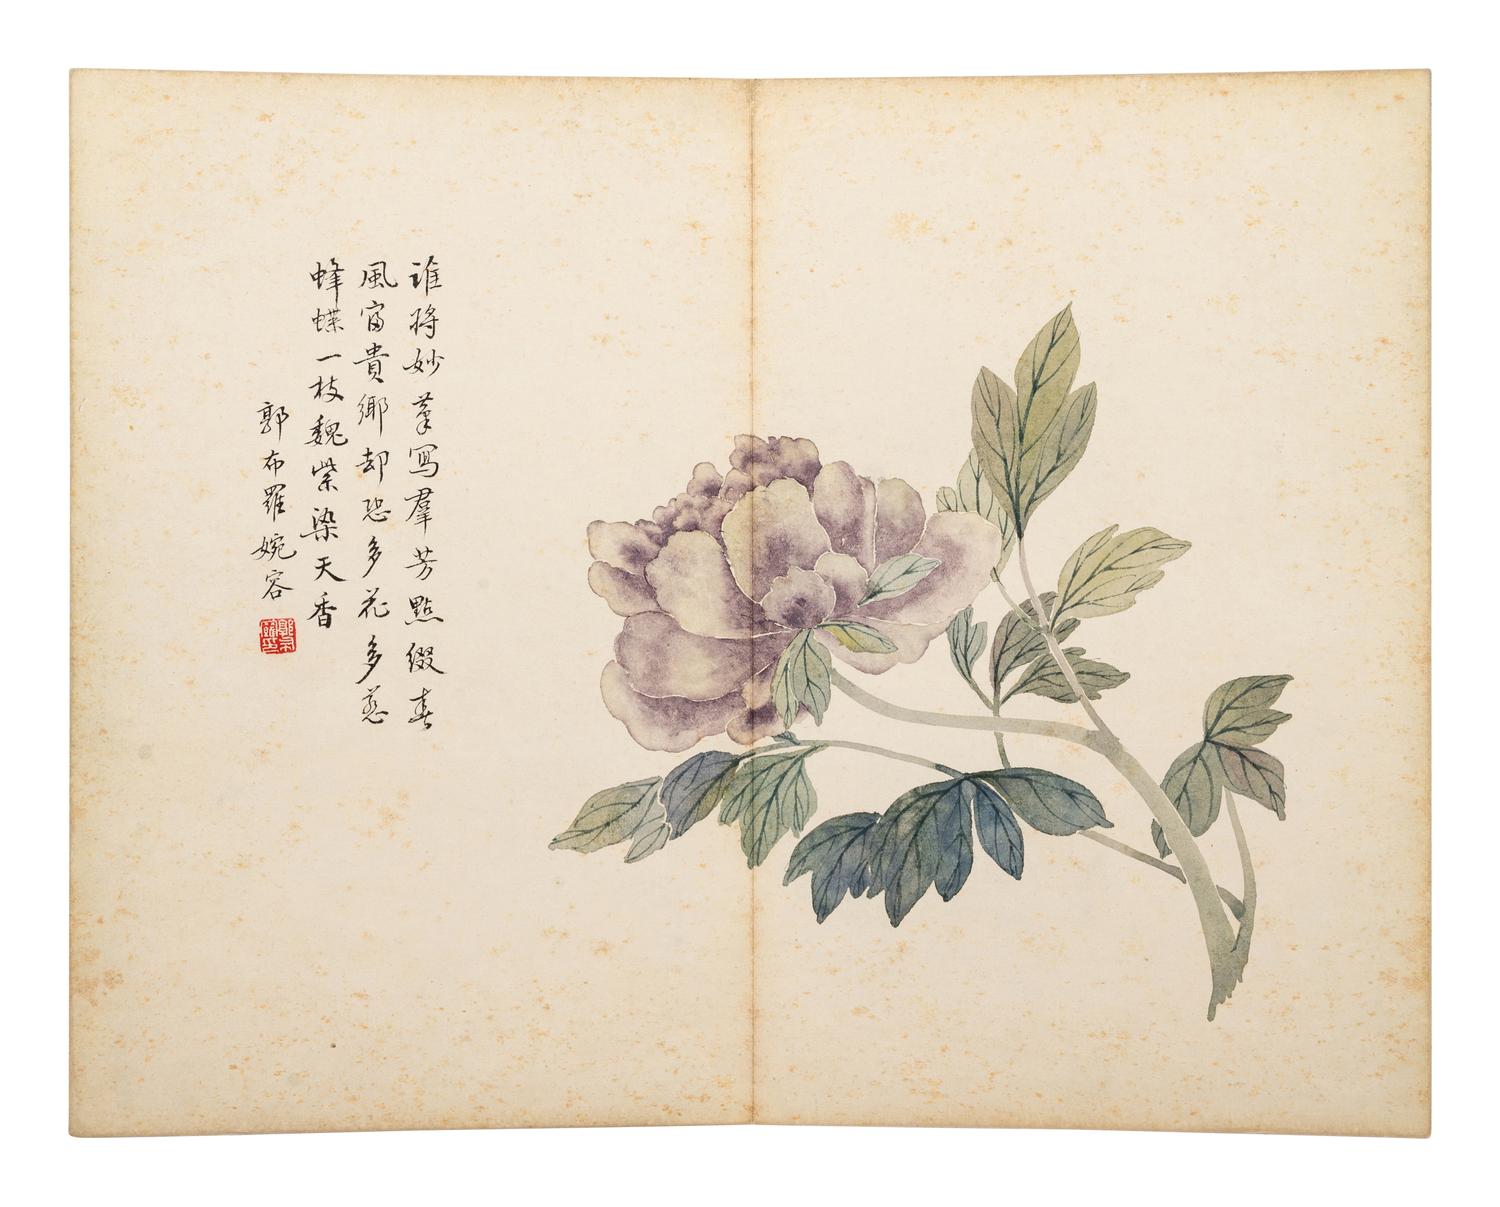 誰將妙筆寫羣芳點綴春
風富貴鄉却恐多花多惹
蜂蝶一枝魏紫染天香
郭布羅婉容